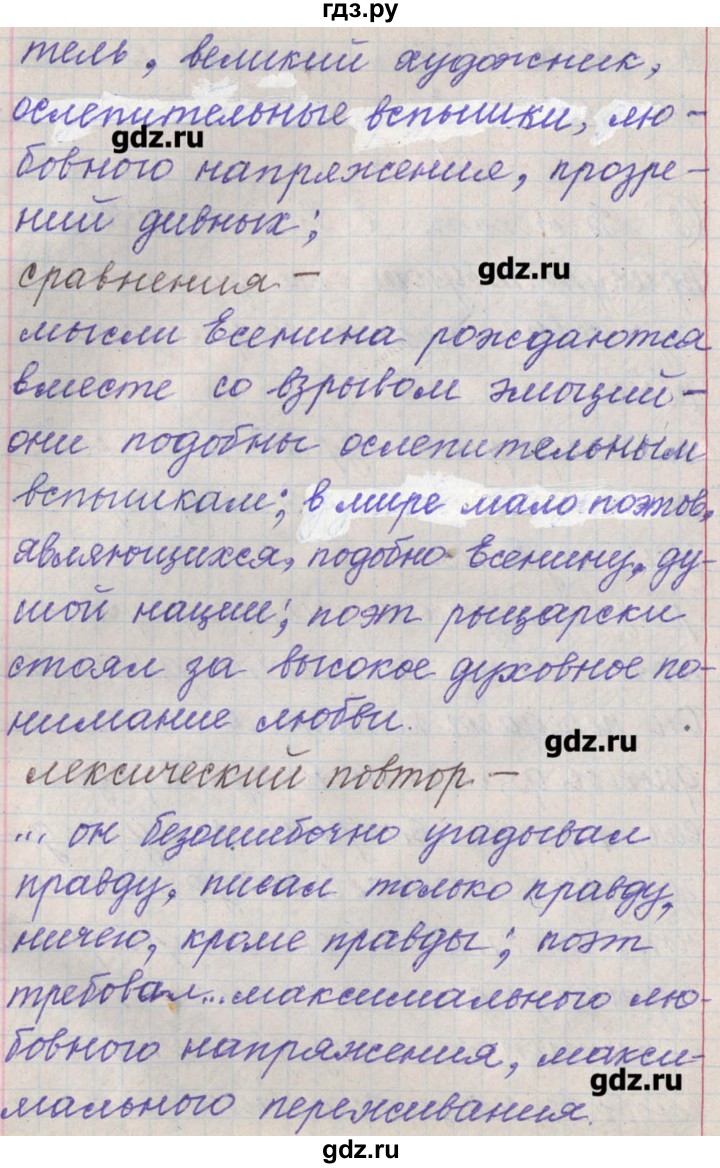 гдз.ру
тель, великий художник,
ослепительные вспышки, лю-
gdz.ru
бовного напряжения, прозре-
ний дивных;
gdz.ru
сравнения –
мысли Есенина рождаются
вместе со взрывом эмоций –
они подобны ослепительным
вспышкам; в мире мало поэтов,
являющихся, подобно Есенину, ду-
шой нации; поэт рыцарски
стоял за высокое духовное по-
нимание любви.
gdz.ru
лексический повтор –
... он безошибочно угадывал
правду, писал только правду,
ничего, кроме правды; поэт
требовал... максимального лю-
бовного напряжения, макси-
gdz.ru
мального переживания.
gdz.ru